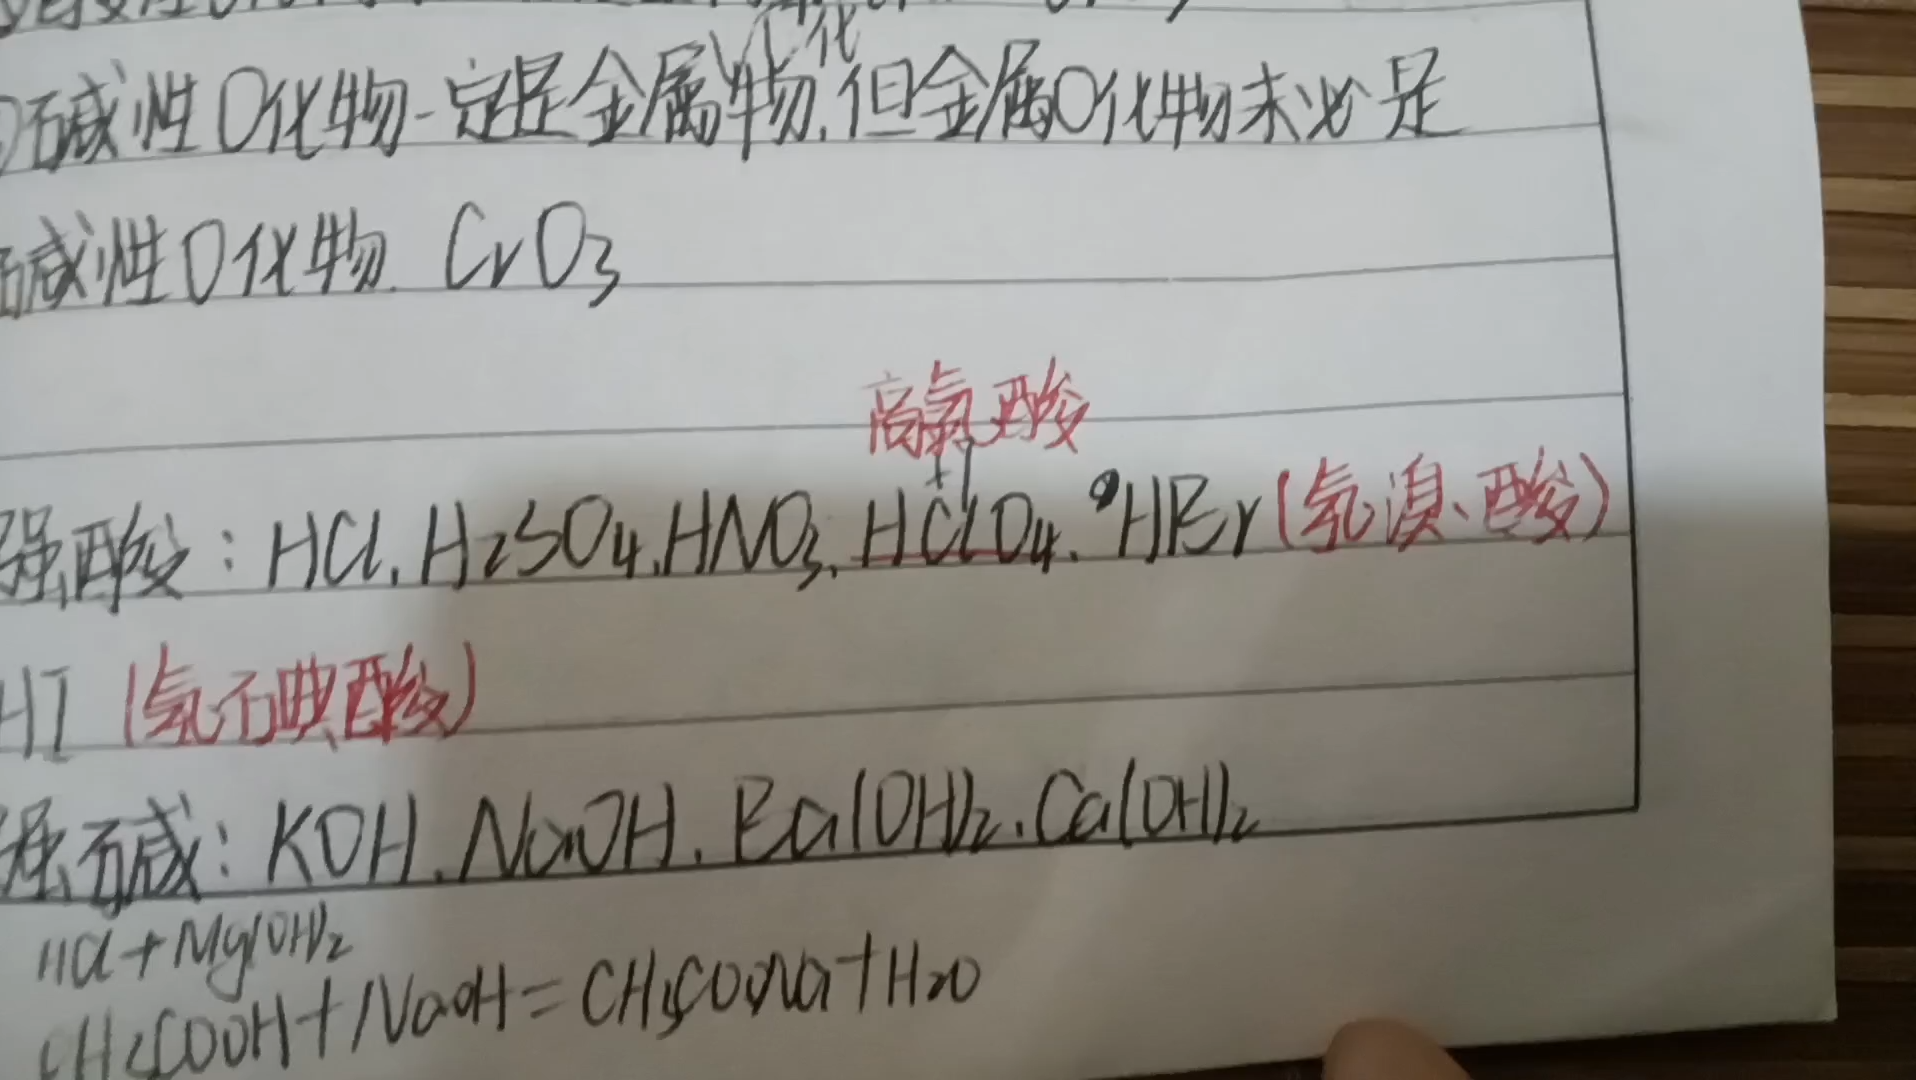 碱性O化物一定是金属O化物.但金属O化物未必是
碱性O化物. CrO3
高氯酸
强酸：HCl. H2SO4. HNO3. HClO4. HBr (氢溴酸)
HI (氢碘酸)
强碱：KOH. NaOH. Ba(OH)2. Ca(OH)2
HCl+Mg(OH)2
CH3COOH+NaOH=CH3COONa+H2O